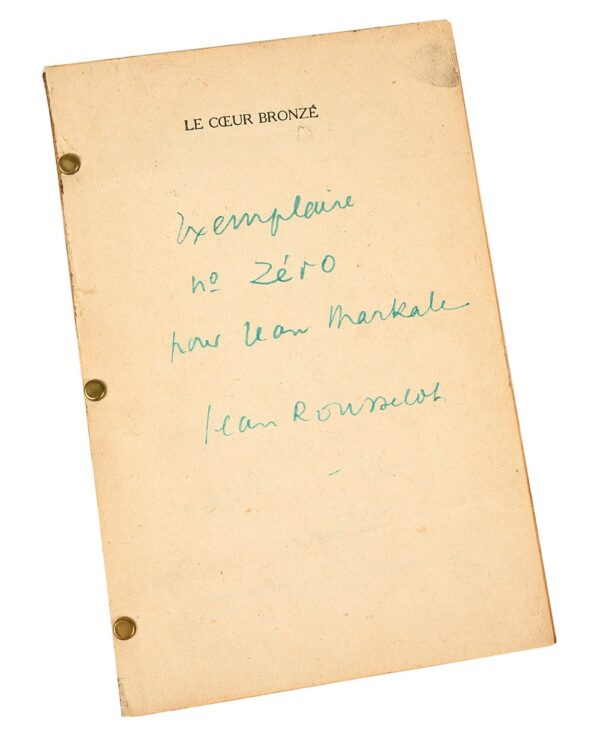 LE CŒUR BRONZÉ
Exemplaire
no Zéro
pour Jean Markale
Jean Rousselot